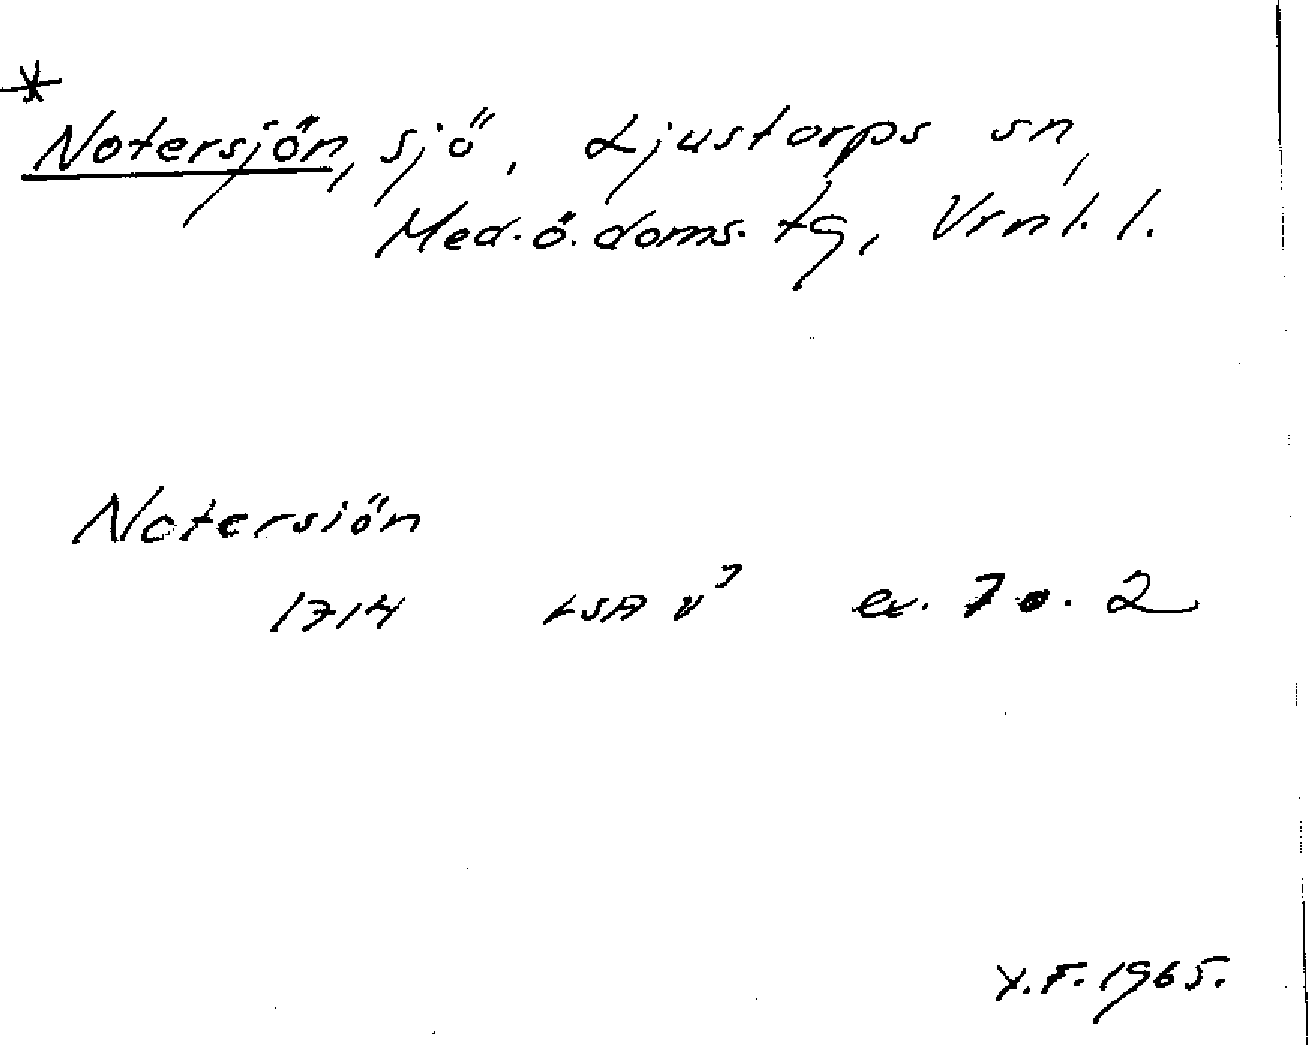 *
Notersjön, sjö, Ljustorps sn,
Med.ö.doms.tg, Vrnl. l.
Notersiön
1714 LSA v³ ex. 7 o. 2
Y.F. 1965.